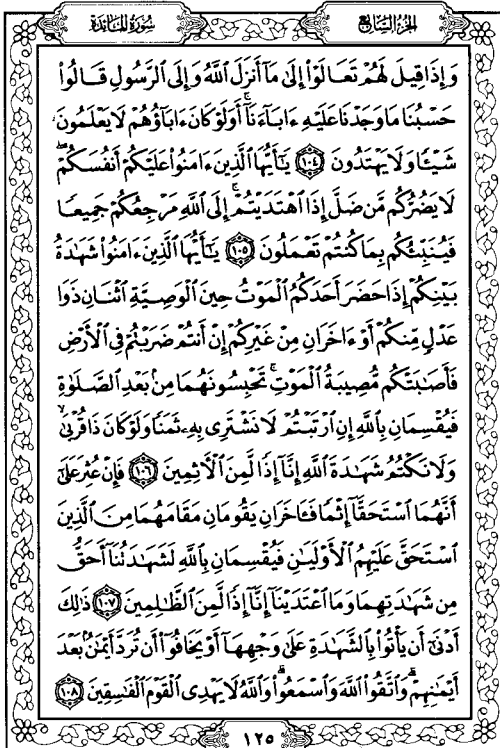 سُورَةُ المَائِدَةِ الجُزْءُ السَّابِعُ
وَإِذَا قِيلَ لَهُمْ تَعَالَوْا۟ إِلَىٰ مَآ أَنزَلَ ٱللَّهُ وَإِلَى ٱلرَّسُولِ قَالُوا۟
حَسْبُنَا مَا وَجَدْنَا عَلَيْهِ ءَابَآءَنَآ ۚ أَوَلَوْ كَانَ ءَابَآؤُهُمْ لَا يَعْلَمُونَ
شَيْـًٔا وَلَا يَهْتَدُونَ ١٠٤ يَـٰٓأَيُّهَا ٱلَّذِينَ ءَامَنُوا۟ عَلَيْكُمْ أَنفُسَكُمْ ۖ
لَا يَضُرُّكُم مَّن ضَلَّ إِذَا ٱهْتَدَيْتُمْ ۚ إِلَى ٱللَّهِ مَرْجِعُكُمْ جَمِيعًا
فَيُنَبِّئُكُم بِمَا كُنتُمْ تَعْمَلُونَ ١٠٥ يَـٰٓأَيُّهَا ٱلَّذِينَ ءَامَنُوا۟ شَهَـٰدَةُ
بَيْنِكُمْ إِذَا حَضَرَ أَحَدَكُمُ ٱلْمَوْتُ حِينَ ٱلْوَصِيَّةِ ٱثْنَانِ ذَوَا
عَدْلٍ مِّنكُمْ أَوْ ءَاخَرَانِ مِنْ غَيْرِكُمْ إِنْ أَنتُمْ ضَرَبْتُمْ فِى ٱلْأَرْضِ
فَأَصَـٰبَتْكُم مُّصِيبَةُ ٱلْمَوْتِ ۚ تَحْبِسُونَهُمَا مِنۢ بَعْدِ ٱلصَّلَوٰةِ
فَيُقْسِمَانِ بِٱللَّهِ إِنِ ٱرْتَبْتُمْ لَا نَشْتَرِى بِهِۦ ثَمَنًا وَلَوْ كَانَ ذَا قُرْبَىٰ ۙ
وَلَا نَكْتُمُ شَهَـٰدَةَ ٱللَّهِ إِنَّآ إِذًا لَّمِنَ ٱلْـَٔاثِمِينَ ١٠٦ فَإِنْ عُثِرَ عَلَىٰٓ
أَنَّهُمَا ٱسْتَحَقَّآ إِثْمًا فَـَٔاخَرَانِ يَقُومَانِ مَقَامَهُمَا مِنَ ٱلَّذِينَ
ٱسْتَحَقَّ عَلَيْهِمُ ٱلْأَوْلَيَـٰنِ فَيُقْسِمَانِ بِٱللَّهِ لَشَهَـٰدَتُنَآ أَحَقُّ
مِن شَهَـٰدَتِهِمَا وَمَا ٱعْتَدَيْنَآ إِنَّآ إِذًا لَّمِنَ ٱلظَّـٰلِمِينَ ١٠٧ ذَٰلِكَ
أَدْنَىٰٓ أَن يَأْتُوا۟ بِٱلشَّهَـٰدَةِ عَلَىٰ وَجْهِهَآ أَوْ يَخَافُوٓا۟ أَن تُرَدَّ أَيْمَـٰنٌۢ بَعْدَ
أَيْمَـٰنِهِمْ ۗ وَٱتَّقُوا۟ ٱللَّهَ وَٱسْمَعُوا۟ ۗ وَٱللَّهُ لَا يَهْدِى ٱلْقَوْمَ ٱلْفَـٰسِقِينَ ١٠٨
١٢٥